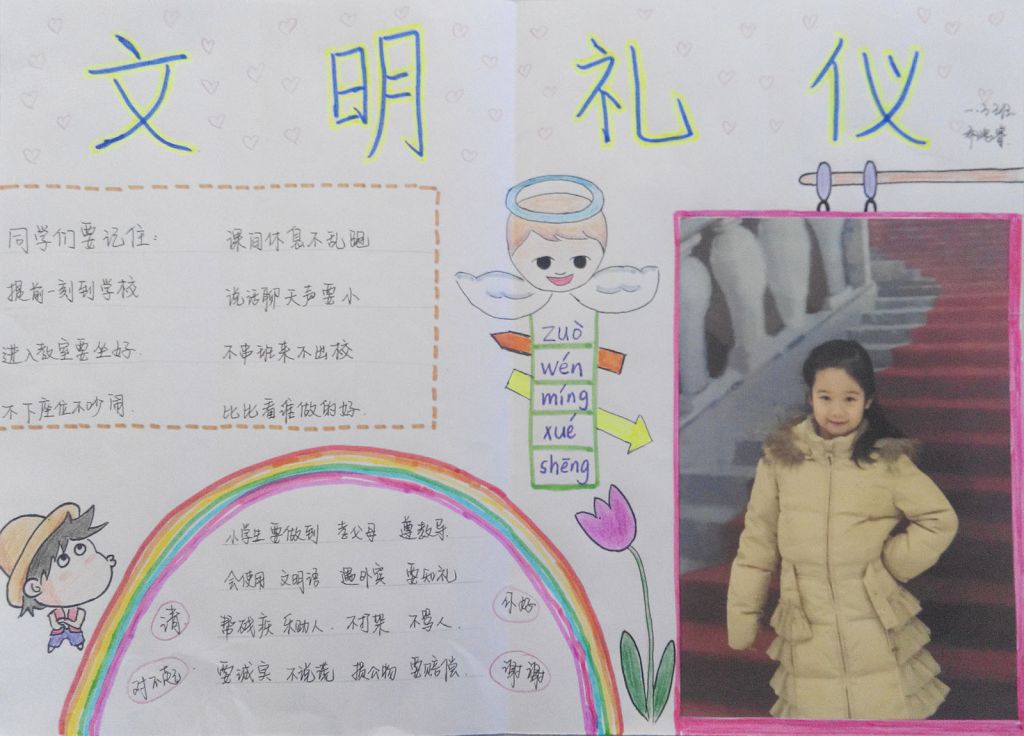 文明礼仪
同学们要记住：
提前一刻到学校
进入教室要坐好.
不下座位不吵闹.
课间休息不乱跑
说话聊天声要小
不串班来不出校
比比看谁做的好.
zuò
wén
míng
xué
shēng
小学生要做到 孝父母 尊教导
会使用 文明语 遇外宾 要知礼
帮残疾 乐助人. 不打架 不骂人.
要诚实 不说谎 损公物 要赔偿.
请
对不起
你好
谢谢